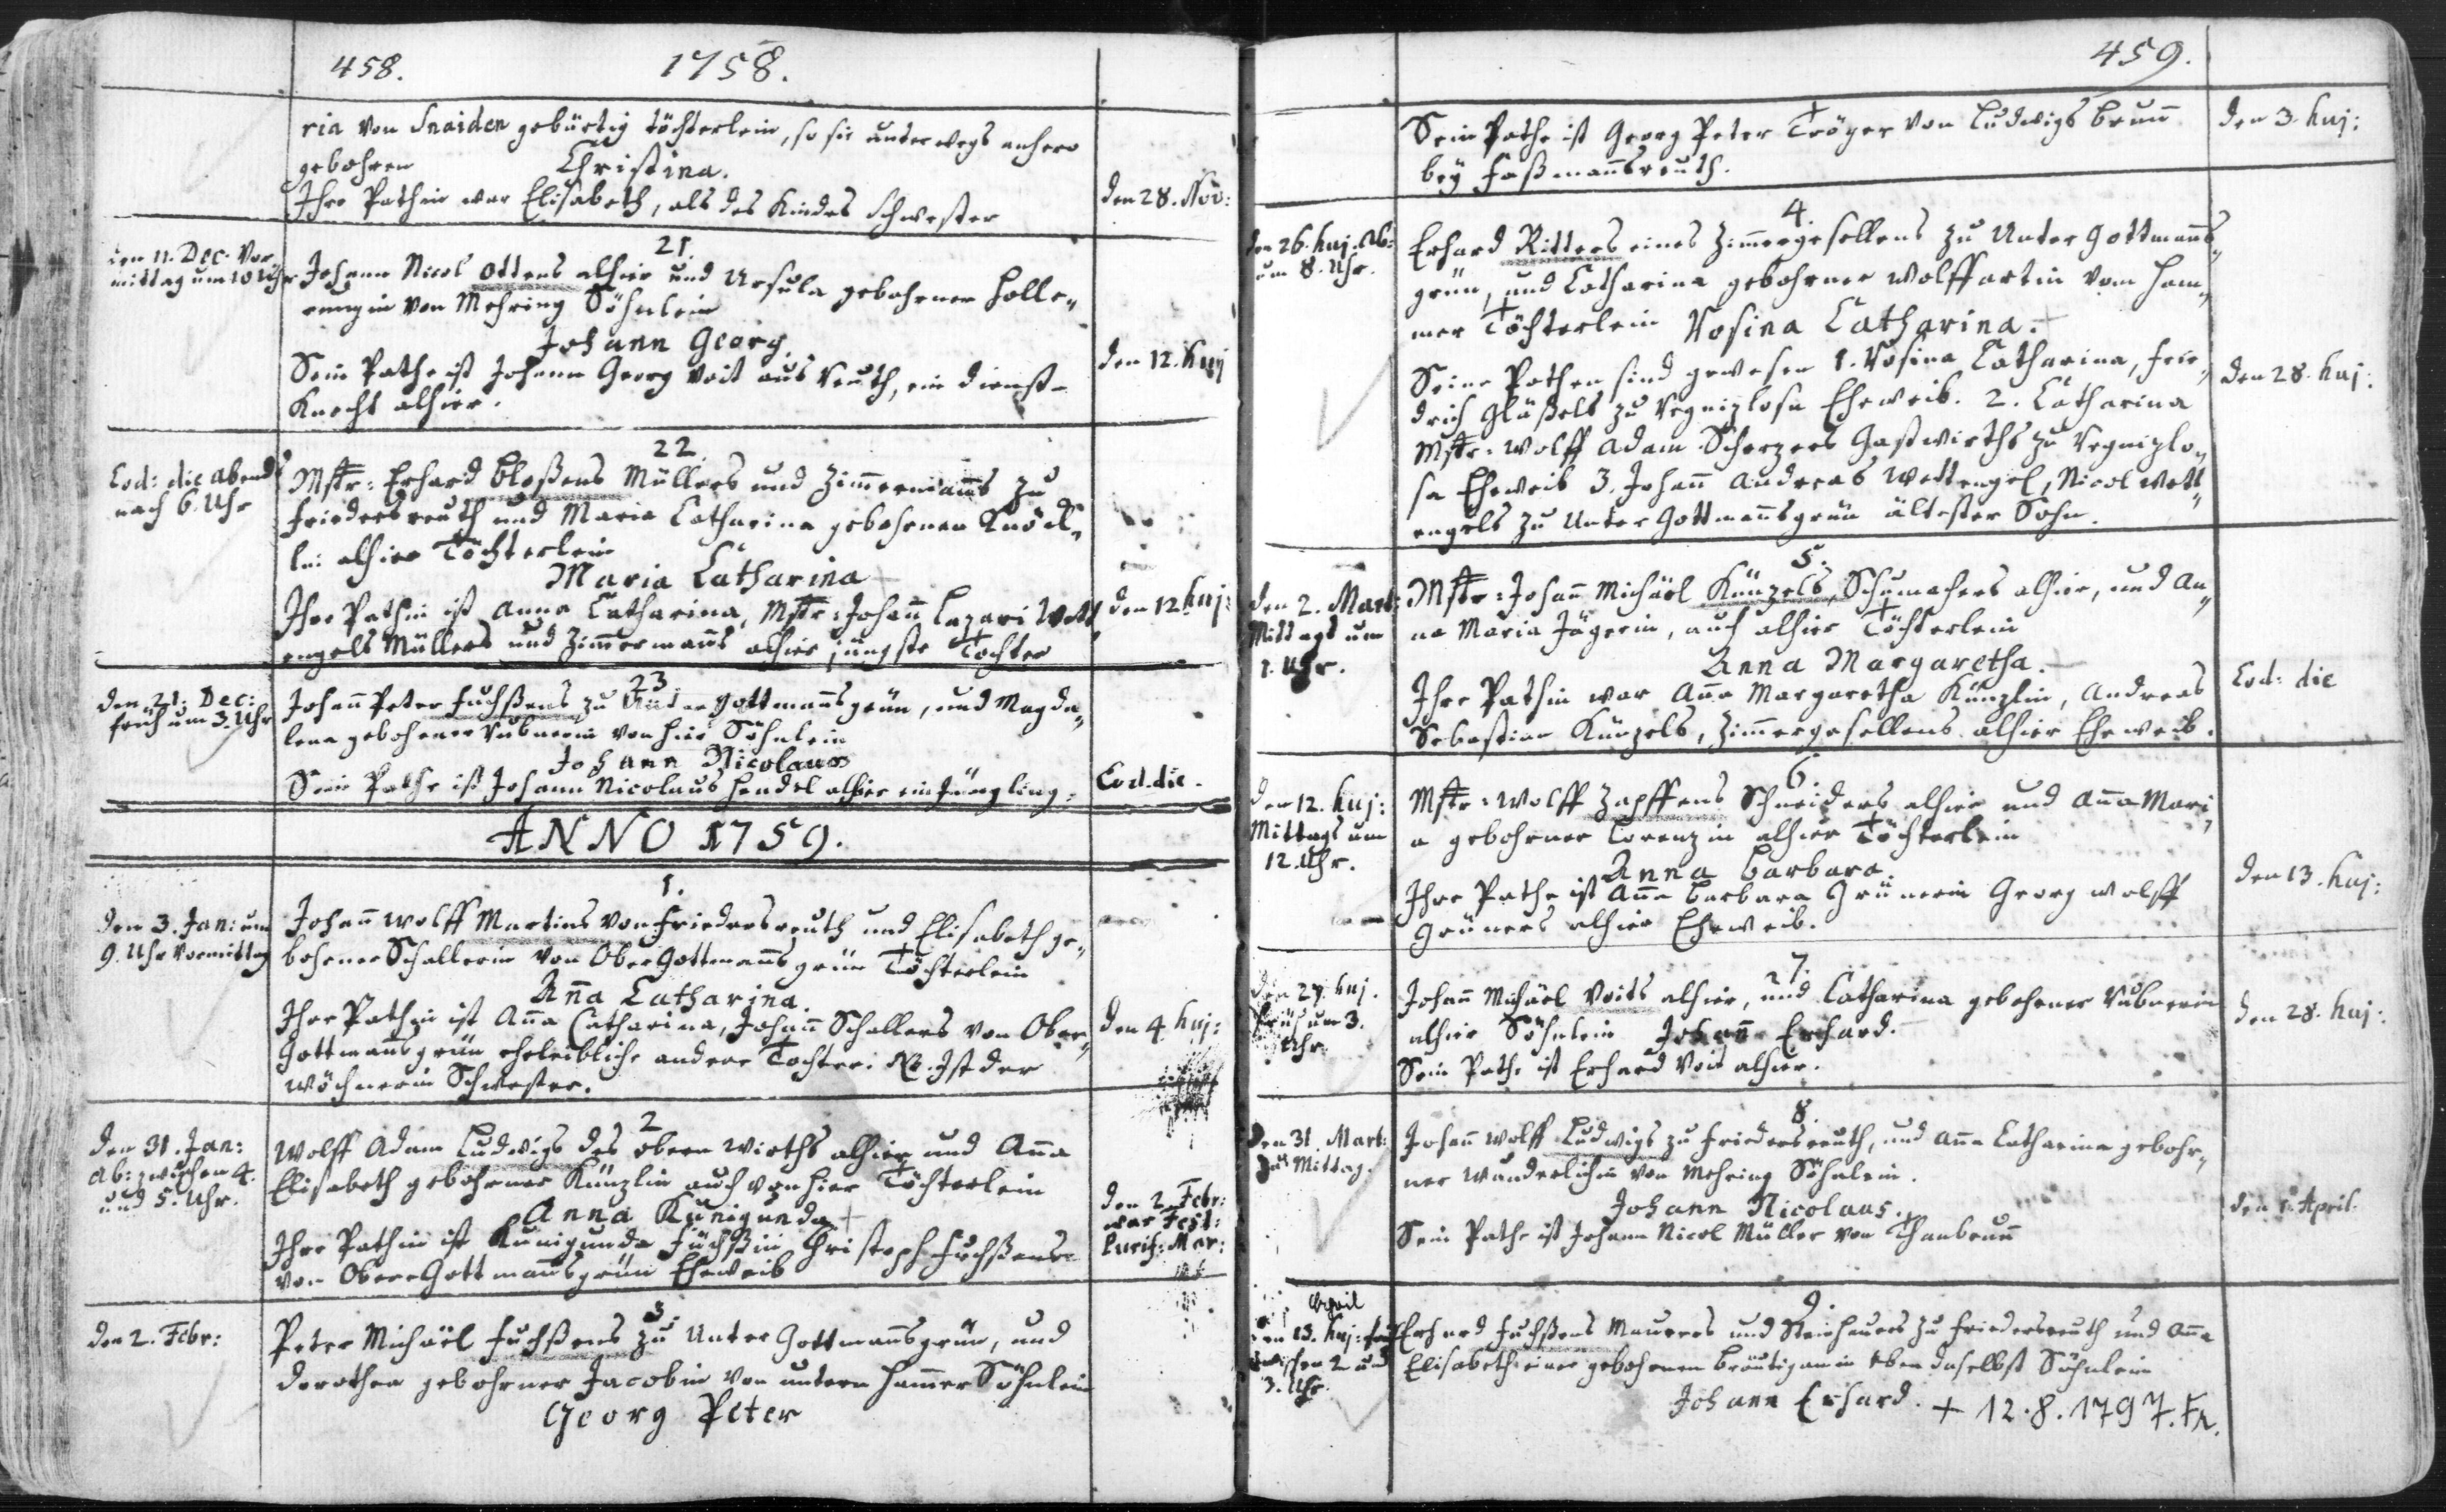 458.
1758.
ria von Snaiden gebürtig töchterlein, so sie unterwegs anhero
gebohren Christina.
Ihre Pathin war Elisabeth, als des Kindes Schwester
den 28. Nov:
21.
den 11. Dec. Vor
mittag um 10 Uhr
Johann Nicol Ottens alhier und Ursula gebohrner Holle„
rungin von Mehring Söhnlein
Johann Georg.
Sein Pathe ist Johann Georg Voit aus Reuth, ein Dienst-
Knecht alhier.
den 12. Huj
22.
Eod: die Abends
nach 6 Uhr
Mstr: Erhard Bloßens Müllers und Zimmermanns zu
Friedersreuth und Maria Catharina gebohrnen Knöck„
lin alhier Töchterlein
Maria Catharina
Ihre Pathin ist Anna Catharina, Mstr: Johann Lazari Wett„
engels Müllers und Zimmermanns alhier jüngste Tochter
den 12 huj:
23
den 21. Dec:
früh um 3. Uhr
Johann Peter Fuchßens zu Unter Gottmannsgrün, und Magda„
lena gebohrner Rubnerin von hier Söhnlein
Johann Nicolaus
Sein Pathe ist Johann Nicolaus Hendel alhier ein Jüngling.
Eod. die.
ANNO 1759.
1.
den 3. Jan: um
9. Uhr Vormittag
Johann Wolff Martins von Friedersreuth und Elisabeth ge„
bohrner Schallerin von Ober Gottmannsgrün Töchterlein
Anna Catharina.
Ihre Pathin ist Anna Catharina, Johann Schallers von Ober„
Gottmannsgrün eheleibliche andere Tochter. NB. Ist der
Wöchnerin Schwester.
den 4 huj:
2
den 31. Jan:
Ab: zwischen 4.
und 5. Uhr.
Wolff Adam Ludwigs des obern Wirths alhier und Anna
Elisabeth gebohrner Künzlin auch von hier Töchterlein
Anna Kunigunda
Ihre Pathin ist Kunigunda Füchßin Christoph Fuchßens
von Ober Gottmannsgrün Eheweib
den 2. Febr:
war Fest:
Purif: Mar:
3.
den 2. Febr:
Peter Michäel Fuchßens zu Unter Gottmannsgrün, und
Dorothea gebohrner Jacobin von untern Hammer Söhnlein
Georg Peter
459.
Sein Pathe ist Georg Peter Tröger von Ludwigs Brunn
bey Faßmannsreuth.
den 3. huj:
4.
den 26. huj. Ab:
um 8. Uhr.
Erhard Ritters eines Zimmergesellens zu Unter Gottmanns„
grün, und Catharina gebohrner Wolffartin vom Ham„
mer Töchterlein Rosina Catharina.
Seine Pathen sind gewesen 1. Rosina Catharina, Frie„
drich Gläßels zu Regnizlosa Eheweib. 2. Catharina
Mstr: Wolff Adam Scherzers Gastwirths zu Regnizlo„
sa Eheweib 3. Johann Andreas Wettengel, Nicol Wett„
engels zu Unter Gottmannsgrün ältester Sohn.
den 28. huj:
5.
den 2. Mart:
Mittags um
1. Uhr.
Mstr: Johann Michäel Künzels, Schumachers alhier, und An„
na Maria Jägerin, auch alhier Töchterlein
Anna Margaretha.
Ihre Pathin war Anna Margaretha Künzlin, Andreas
Sebastian Künzels, Zimmergesellens alhier Eheweib.
Eod: die
6.
den 12. huj:
Mittags um
12. Uhr.
Mstr: Wolff Zapffens Schneiders alhier und Anna Mari„
a gebohrner Lorenzin alhier Töchterlein
Anna Barbara.
Ihre Pathe ist Anna Barbara Grünerin Georg Wolff
Grüners alhier Eheweib.
den 13. huj:
7.
den 27. huj.
früh um 3.
Uhr.
Johann Michäel Voits alhier, und Catharina gebohrner Rubnerin
alhier Söhnlein Johann Erhard.
Sein Pathe ist Erhard Voit alhier.
den 28. huj:
8.
den 31. Mart:
zu Mittag.
Johann Wolff Ludwigs zu Friedersreuth, und Anna Catharina gebohr„
ner Wunderlichin von Mehring Söhnlein.
Johann Nicolaus.
Sein Pathe ist Johann Nicol Müller von Thanbrunn
den 1. April.
9.
April
den 13. huj: früh
zwischen 2 und
3. Uhr.
Erhard Fuchßens Maurers und Steinhauers zu Friedersreuth und Anna
Elisabeth einer gebohrnen Bräutigamin eben daselbst Söhnlein
Johann Erhard. + 12.8.1797. Fr.